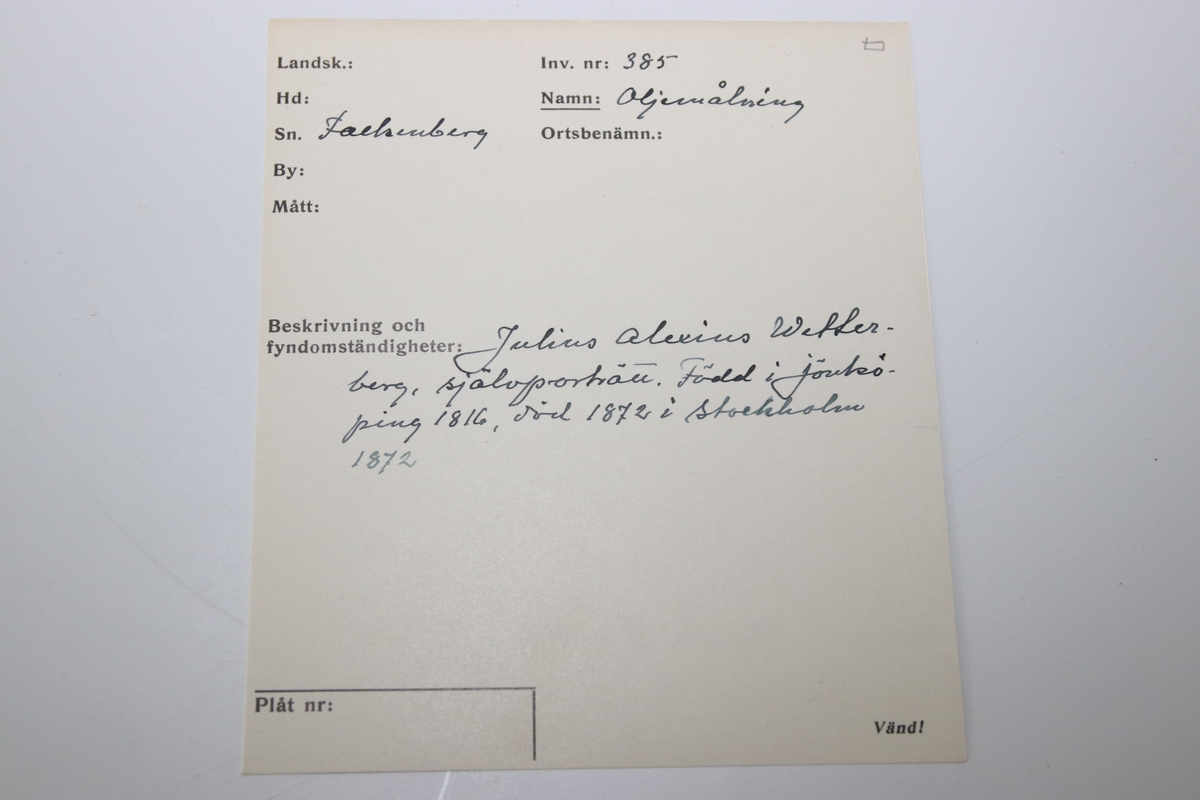 Landsk.:
Inv. nr: 385
Hd:
Namn: Oljemålning
Sn. Falkenberg
Ortsbenämn.:
By:
Mått:
Beskrivning och
fyndomständigheter: Julius Alexius Wetter-
berg, självporträtt. Född i Jönkö-
ping 1816, död 1872 i Stockholm
1872
Plåt nr:
Vänd!